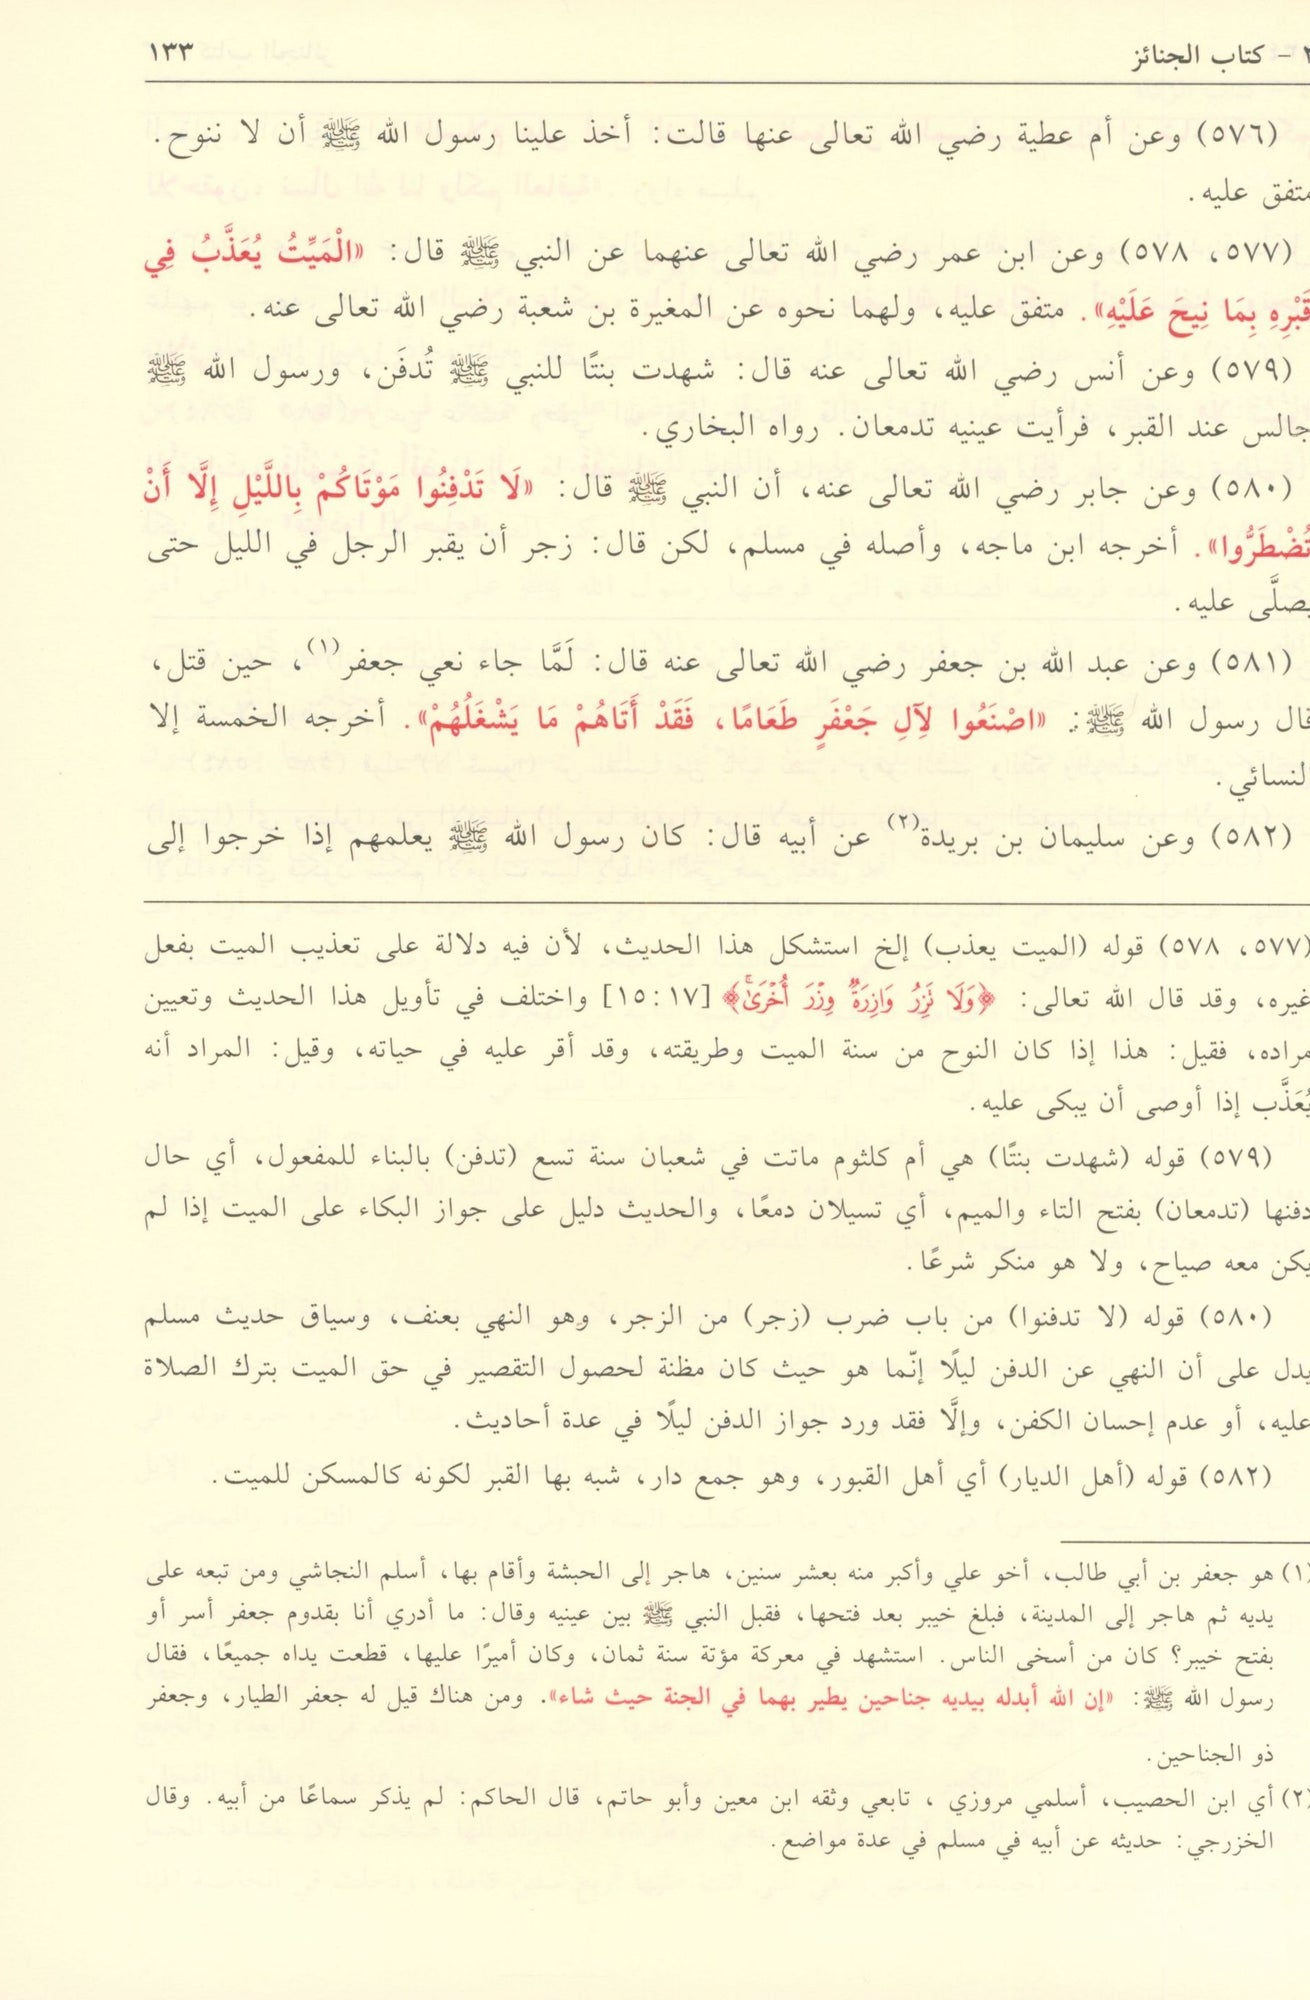 ٣ - كتاب الجنائز ١٣٣
(٥٧٦) وعن أم عطية رضي الله تعالى عنها قالت: أخذ علينا رسول الله ﷺ أن لا ننوح.
متفق عليه.
(٥٧٧، ٥٧٨) وعن ابن عمر رضي الله تعالى عنهما عن النبي ﷺ قال: «الْمَيِّتُ يُعَذَّبُ فِي
قَبْرِهِ بِمَا نِيحَ عَلَيْهِ». متفق عليه، ولهما نحوه عن المغيرة بن شعبة رضي الله تعالى عنه.
(٥٧٩) وعن أنس رضي الله تعالى عنه قال: شهدت بنتًا للنبي ﷺ تُدفَن، ورسول الله ﷺ
جالس عند القبر، فرأيت عينيه تدمعان. رواه البخاري.
(٥٨٠) وعن جابر رضي الله تعالى عنه، أن النبي ﷺ قال: «لَا تَدْفِنُوا مَوْتَاكُمْ بِاللَّيْلِ إِلَّا أَنْ
تُضْطَرُّوا». أخرجه ابن ماجه، وأصله في مسلم، لكن قال: زجر أن يقبر الرجل في الليل حتى
يصلَّى عليه.
(٥٨١) وعن عبد الله بن جعفر رضي الله تعالى عنه قال: لَمَّا جاء نعي جعفر(١)، حين قتل،
قال رسول الله ﷺ: «اصْنَعُوا لِآلِ جَعْفَرٍ طَعَامًا، فَقَدْ أَتَاهُمْ مَا يَشْغَلُهُمْ». أخرجه الخمسة إلا
النسائي.
(٥٨٢) وعن سليمان بن بريدة(٢) عن أبيه قال: كان رسول الله ﷺ يعلمهم إذا خرجوا إلى
(٥٧٧، ٥٧٨) قوله (الميت يعذب) إلخ استشكل هذا الحديث، لأن فيه دلالة على تعذيب الميت بفعل
غيره، وقد قال الله تعالى: ﴿وَلَا تَزِرُ وَازِرَةٌ وِزْرَ أُخْرَىٰ﴾ [١٧:١٥] واختلف في تأويل هذا الحديث وتعيين
مراده، فقيل: هذا إذا كان النوح من سنة الميت وطريقته، وقد أقر عليه في حياته، وقيل: المراد أنه
يُعَذَّب إذا أوصى أن يبكى عليه.
(٥٧٩) قوله (شهدت بنتًا) هي أم كلثوم ماتت في شعبان سنة تسع (تدفن) بالبناء للمفعول، أي حال
دفنها (تدمعان) بفتح التاء والميم، أي تسيلان دمعًا، والحديث دليل على جواز البكاء على الميت إذا لم
يكن معه صياح، ولا هو منكر شرعًا.
(٥٨٠) قوله (لا تدفنوا) من باب ضرب (زجر) من الزجر، وهو النهي بعنف، وسياق حديث مسلم
يدل على أن النهي عن الدفن ليلًا إنّما هو حيث كان مظنة لحصول التقصير في حق الميت بترك الصلاة
عليه، أو عدم إحسان الكفن، وإلَّا فقد ورد جواز الدفن ليلًا في عدة أحاديث.
(٥٨٢) قوله (أهل الديار) أي أهل القبور، وهو جمع دار، شبه بها القبر لكونه كالمسكن للميت.
(١) هو جعفر بن أبي طالب، أخو علي وأكبر منه بعشر سنين، هاجر إلى الحبشة وأقام بها، أسلم النجاشي ومن تبعه على
يديه ثم هاجر إلى المدينة، فبلغ خيبر بعد فتحها، فقبل النبي ﷺ بين عينيه وقال: ما أدري أنا بقدوم جعفر أسر أو
بفتح خيبر؟ كان من أسخى الناس. استشهد في معركة مؤتة سنة ثمان، وكان أميرًا عليها، قطعت يداه جميعًا، فقال
رسول الله ﷺ: «إن الله أبدله بيديه جناحين يطير بهما في الجنة حيث شاء». ومن هناك قيل له جعفر الطيار، وجعفر
ذو الجناحين.
(٢) أي ابن الحصيب، أسلمي مروزي ، تابعي وثقه ابن معين وأبو حاتم، قال الحاكم: لم يذكر سماعًا من أبيه. وقال
الخزرجي: حديثه عن أبيه في مسلم في عدة مواضع.